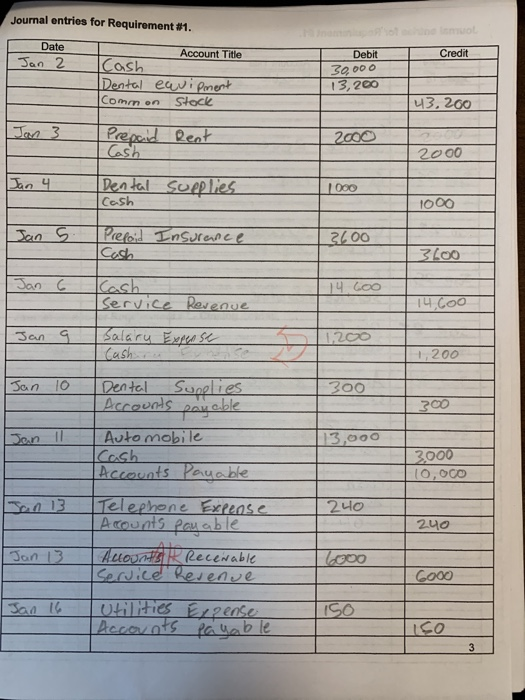 Journal entries for Requirement #1.
Date Account Title Debit Credit
Jan 2 Cash 30,000
Dental equipment 13,200
Common Stock 43.200
Jan 3 Prepaid Rent 2000
Cash 2000
Jan 4 Dental Supplies 1000
Cash 1000
Jan 5 Prepaid Insurance 3600
Cash 3600
Jan 6 Cash 14,600
Service Revenue 14,600
Jan 9 Salary Expense 1,200
Cash 1,200
Jan 10 Dental Supplies 300
Accounts payable 300
Jan 11 Automobile 13,000
Cash 3,000
Accounts Payable 10,000
Jan 13 Telephone Expense 240
Accounts payable 240
Jan 13 A/R Receivable 6000
Service Revenue 6000
Jan 16 Utilities Expense 150
Accounts payable 150
3